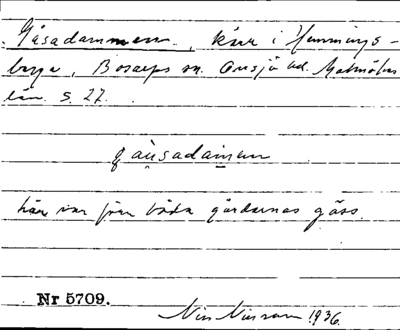 Gåsadammen, kärr i Hennings-
berga, Bosarps sn. Onsjö hd. Malmöhus
län. S. 27.
gåu̯sadamen
här var förr båda gårdarnas gäss.
Nr 5709.
Nils Nilsson 1936.